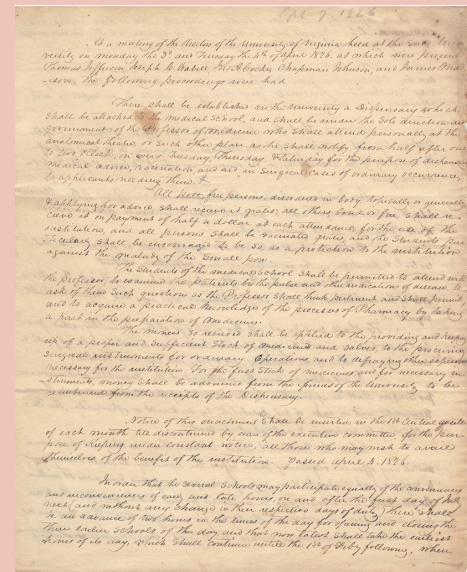 Apl 7. 1826
At a meeting of the Visitors of the University of Virginia held at the said Uni
versity on monday the 3d. and Tuesday the 4th of April 1826. at which were present
Thomas Jefferson, Joseph C. Cabell, John H. Cocke, Chapman Johnson, and James Mad-
ison. The following proceedings were had
There shall be established in the University a Dispensary which
shall be attached to the medical School, and shall be under the sole direction and
government of the Professor of medicine who shall attend personally at the
anatomical theatre, or such other place as he shall notify from half after one
to two oClock, on every Tuesday, Thursday & Saturday for the purpose of dispensing
medical advice, vaccination, and aid in Surgical cases of ordinary occurrence,
to applicants needing them.
All poor free persons, disordered in body topically or generally
& applying for advice shall receive it gratis; all others, bond or free shall re-
ceive it on payment of half a dollar at each attendance for the use of the
institution, and all persons shall be vaccinated gratis, and the Students par-
ticularly shall be encouraged to be so, as a protection to the institution
against the malady of the Small pox.
The Students of the medical School shall be permitted to attend with
the Professor, to examine the patients by the pulse and other indications of disease, to
ask of them such questions as the Professor shall think pertinent and shall permit
and to acquire a practical knowledge of the processes of Pharmacy by taking
a part in the preparation of medicines.
The monies so received shall be applied to the providing and keeping
up of a proper and sufficient stock of medicines and salves, to the procuring
Surgical instruments for ordinary Operations, and to defraying other expenses
necessary for the institution. For the first Stock of medicines and for necessary in-
struments, money shall be advanced from the funds of the University to be
reimbursed from the receipts of the Dispensary.
Notice of this enactment shall be inserted in the 1st Central gazette
of each month till discontinued by order of the executive committee for the pur-
pose of keeping under constant notice, all those who may wish to avail
themselves of the benefits of the institution. Passed April 4. 1826
In order that the several Schools may participate equally of the conveniences
and inconveniences of early and late hours, on and after the first day of Feb.
next, and without any change in their respective days of duty, there shall
be an advance of two hours in the times of the day for opening and closing the
three earlier Schools of the day and that now latest shall take the earliest
hours of its day, which shall continue until the 1st of Feby following, when